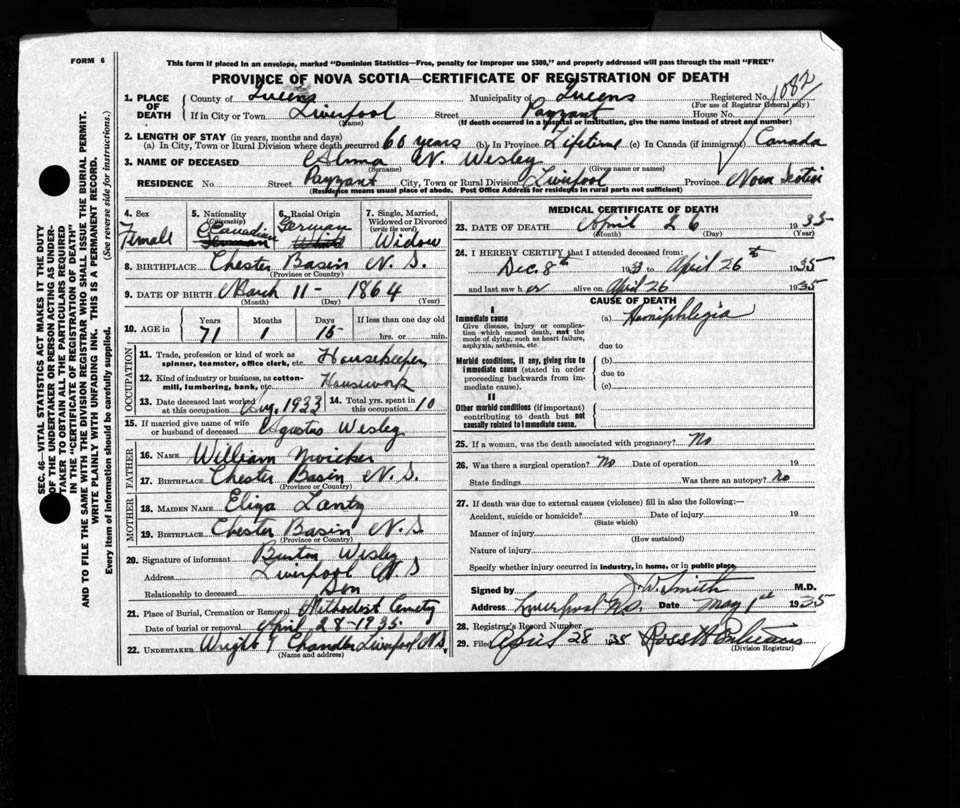 FORM 6
This form if placed in an envelope, marked "Dominion Statistics—Free, penalty for improper use $300," and properly addressed will pass through the mail "FREE"
PROVINCE OF NOVA SCOTIA—CERTIFICATE OF REGISTRATION OF DEATH
1082
1. PLACE OF DEATH County of Queens Municipality of Queens Registered No.
(For use of Registrar General only)
If in City or Town Liverpool Street Payzant House No.
(Name) (If death occurred in a hospital or institution, give the name instead of street and number)
2. LENGTH OF STAY (in years, months and days)
(a) In City, Town or Rural Division where death occurred 60 years (b) In Province Lifetime (c) In Canada (if immigrant) Canada
3. NAME OF DECEASED Alma N. Wesley
(Surname) (Given name or names)
RESIDENCE No. Street Payzant City, Town or Rural Division Liverpool Province Nova Scotia
(Residence means usual place of abode. Post Office Address for residents in rural parts not sufficient)
4. Sex Female
5. Nationality (Citizenship) Canadian German
6. Racial Origin German White
7. Single, Married, Widowed or Divorced (write the word) Widow
8. BIRTHPLACE Chester Basin N. S.
(Province or Country)
9. DATE OF BIRTH March 11 - 1864
(Month) (Day) (Year)
10. AGE in Years Months Days If less than one day old
71 1 15 hrs. or min.
OCCUPATION
11. Trade, profession or kind of work as spinner, teamster, office clerk, etc. Housekeeper
12. Kind of industry or business, as cotton-mill, lumbering, bank, etc. Housework
13. Date deceased last worked at this occupation Aug. 1933 14. Total yrs. spent in this occupation 10
15. If married give name of wife or husband of deceased Agustus Wesley
FATHER
16. NAME William Zwicker
17. BIRTHPLACE Chester Basin N. S.
(Province or Country)
MOTHER
18. MAIDEN NAME Eliza Lantz
19. BIRTHPLACE Chester Basin N. S
(Province or Country)
20. Signature of informant Burton Wesley
Address Liverpool N. S
Relationship to deceased Son
21. Place of Burial, Cremation or Removal Methodist Cemetry
Date of burial or removal April 28 - 1935.
22. UNDERTAKER Wright & Chandler Liverpool N.S.
(Name and address)
MEDICAL CERTIFICATE OF DEATH
23. DATE OF DEATH April 26 1935
(Month) (Day) (Year)
24. I HEREBY CERTIFY that I attended deceased from:
Dec. 8th 1933 to April 26th 1935
and last saw her alive on April 26 1935
CAUSE OF DEATH
I
Immediate cause (a) Hemiphlegia
Give disease, injury or complication which caused death, not the mode of dying, such as heart failure, asphyxia, asthenia, etc.
due to
Morbid conditions, if any, giving rise to immediate cause (stated in order proceeding backwards from immediate cause).
(b)
due to
(c)
II
Other morbid conditions (if important) contributing to death but not causally related to immediate cause.
25. If a woman, was the death associated with pregnancy? No
26. Was there a surgical operation? No Date of operation 19
State findings Was there an autopsy? No
27. If death was due to external causes (violence) fill in also the following:—
Accident, suicide or homicide? Date of injury 19
(State which)
Manner of injury
(How sustained)
Nature of injury
Specify whether injury occurred in industry, in home, or in public place
Signed by J. W. Smith M.D.
Address Liverpool N.S. Date May 1st 1935
28. Registrar's Record Number
29. Filed April 28 1935 Ross H
(Division Registrar)
SEC. 46—VITAL STATISTICS ACT MAKES IT THE DUTY
OF THE UNDERTAKER OR PERSON ACTING AS UNDER-
TAKER TO OBTAIN ALL THE PARTICULARS REQUIRED
IN THE "CERTIFICATE OF REGISTRATION OF DEATH"
AND TO FILE THE SAME WITH THE DIVISION REGISTRAR WHO SHALL ISSUE THE BURIAL PERMIT.
WRITE PLAINLY WITH UNFADING INK. THIS IS A PERMANENT RECORD.
Every item of information should be carefully supplied. (See reverse side for instructions.)